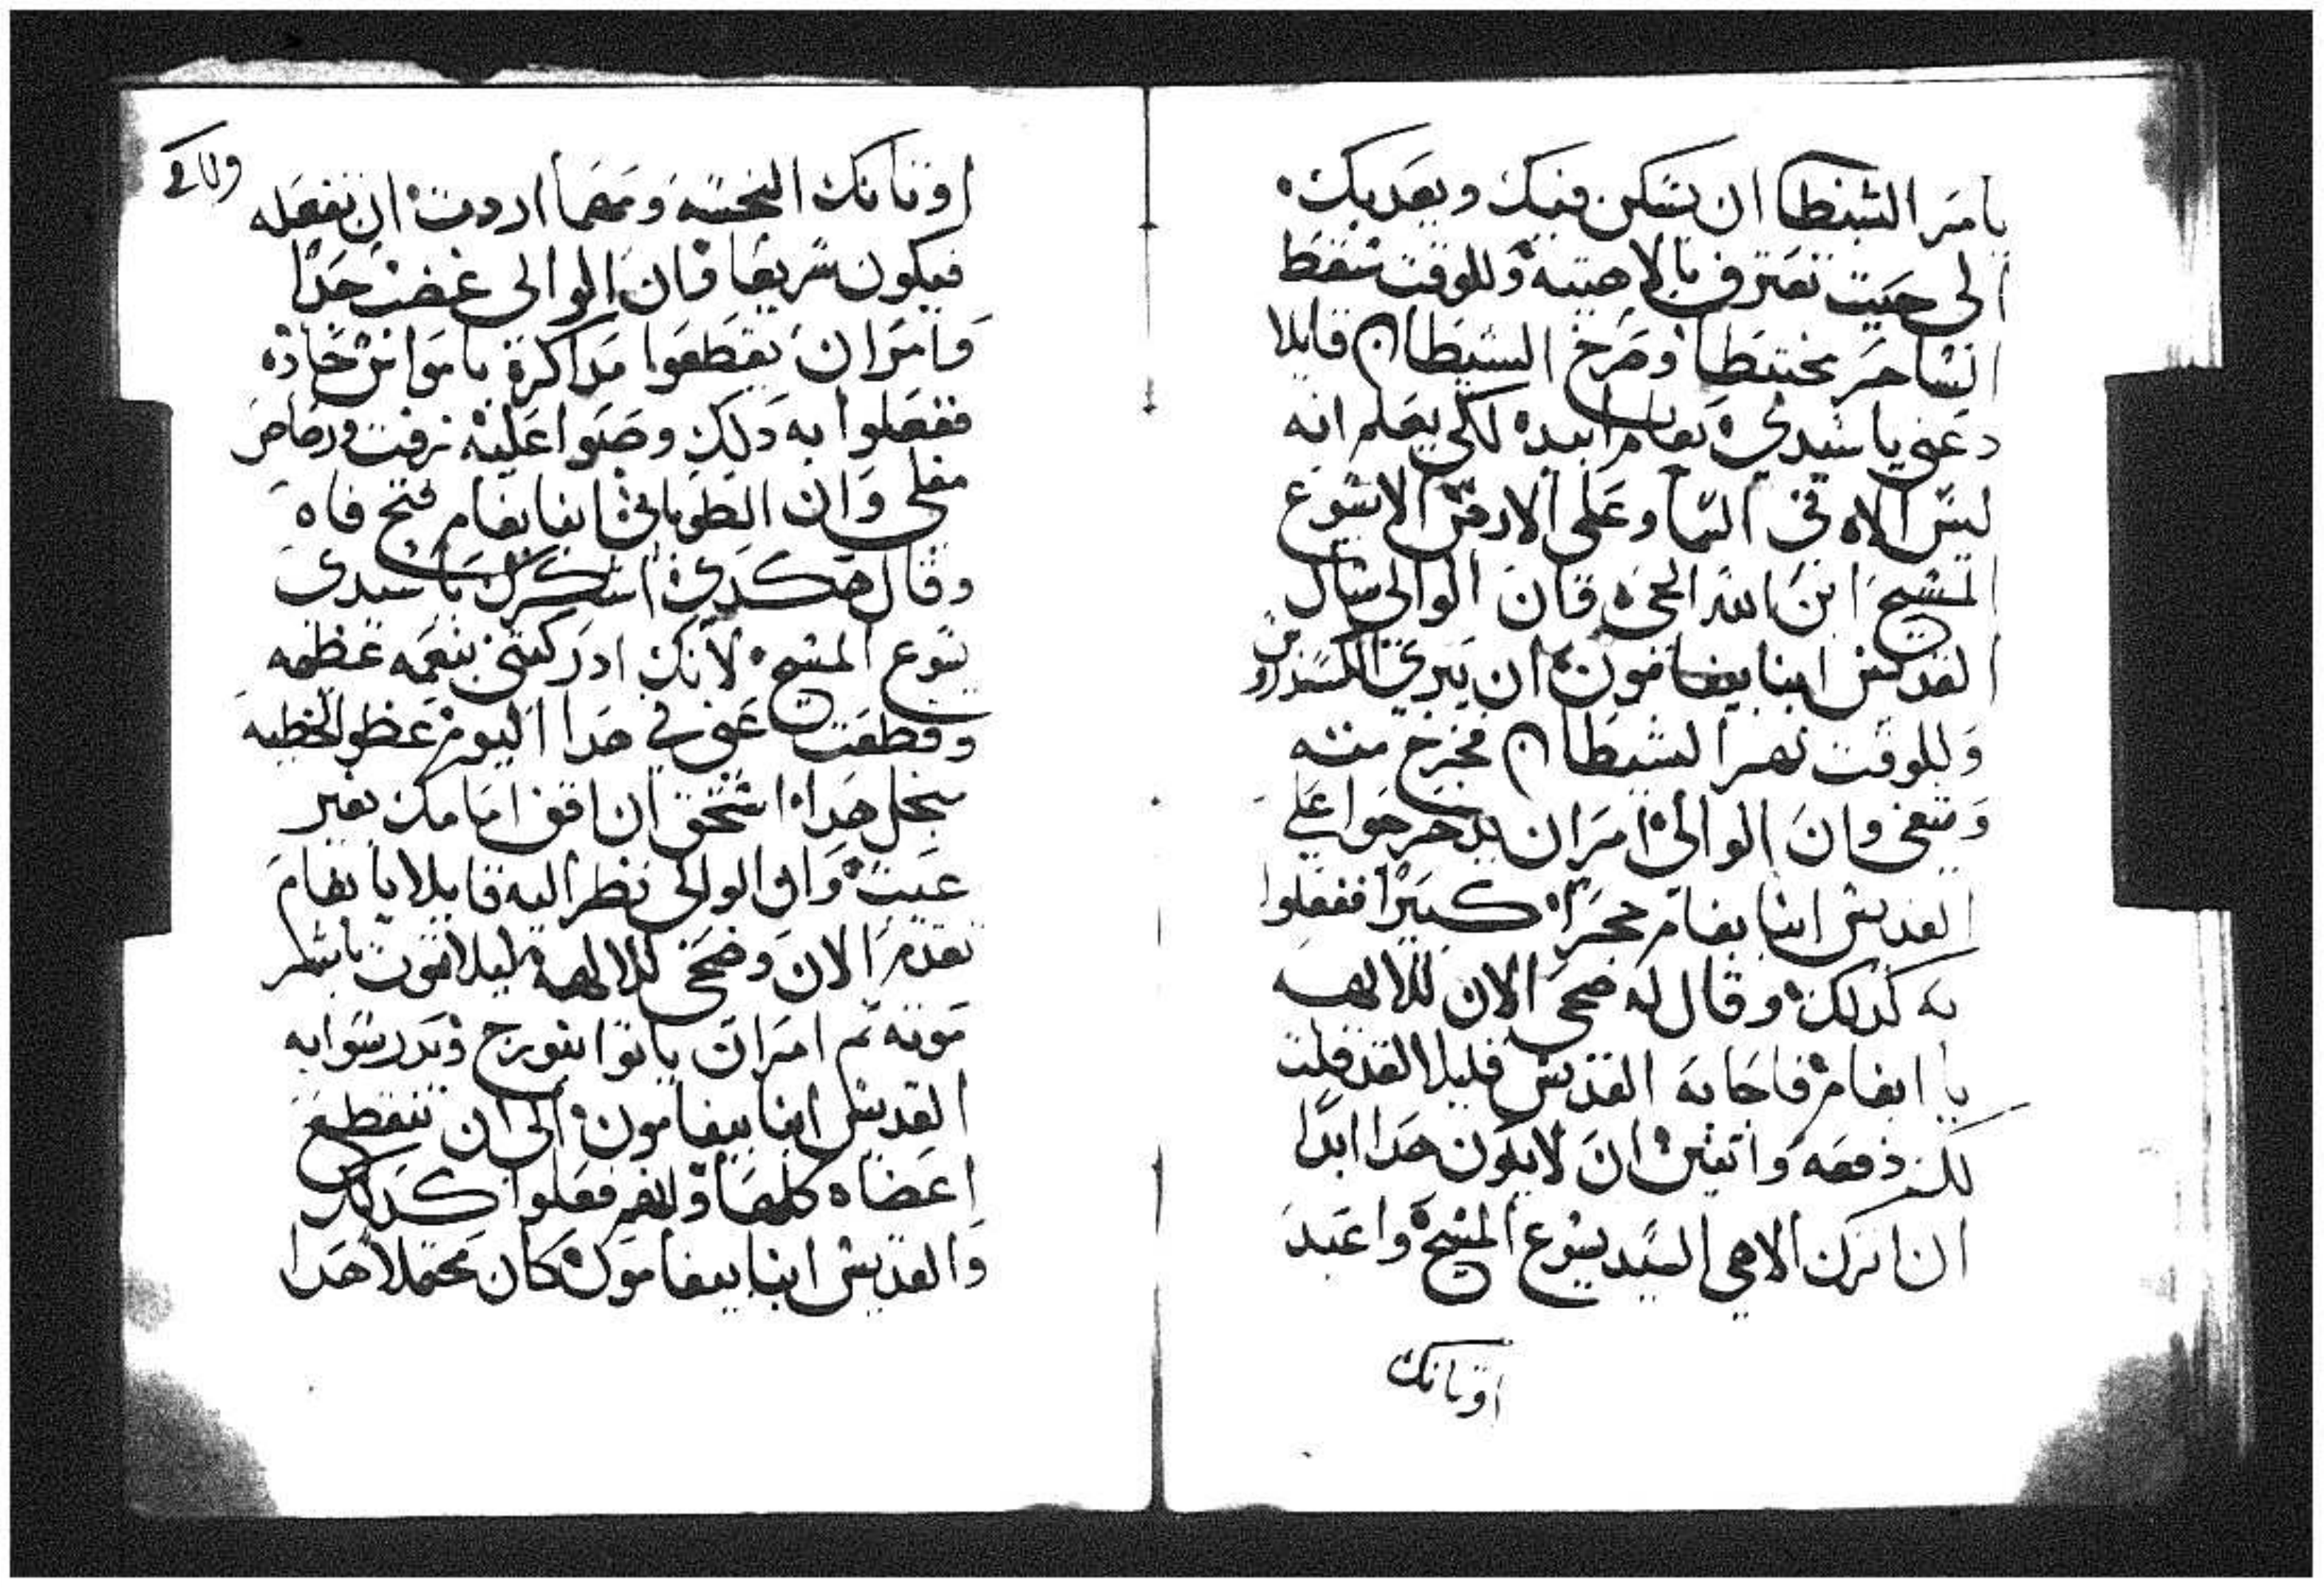 يامر الشيطان ان يسكن فيك ويعذبك
الى حيت تعترف بالاجتيه وللوقت سقط
الساحر مختبطا وصرخ الشيطان قايلا
دعني يا سيدي بفام ابيده لكي يعلم انه
ليس الاه في السما وعلى الارض الا يسوع
المسيح ابن الله الحي فان الوالي سال
القديس ابنا بيفامون ان يبري الكسندروس
وللوقت نهر الشيطان فخرج منه
وتعفى وان الوالي امر ان يدحرجوا علي
القديس ابنا بفام حجرا كبيرا ففعلوا
به كدلك وقال له ضحى الان للالهه
يا ابفام فاجابه القديس قليلا لقد قلت
لك دفعه واتنين ان لا يكون هدا ابدا
ان اترك الاهي السيد يسوع المسيح واعبد
اوتانك
اوتانك النجسه ومهما اردت ان تفعله
فيكون سريعا فان الوالي غضب جدا
وامر ان يقطعوا مداكرة بامواس حاده
ففعلوا به دلك وصبوا عليه زفت ورصاص
مغلي وان الطوباني ابنا بفام فتح فاه
وقال هكدي اشكرك يا سيدي
يسوع المسيح لانك ادركتني بنعمه عظيمه
وقطعت عني في هدا اليوم عظو الخطيه
لنجل هدا استحق ان اقف امامك بغير
عيب وان الوالي نظر اليه قايلا يا بفام
تقدم الان وضحى للالهه ليلا تموت باشر
موته تم امر ان ياتوا بنورج ويدرسوا به
القديس ابنا بيفامون الى ان تتقطع
اعضاه كلها وانهم فعلوا كدلك
والقديس ابنا بيفامون كان محتملا هدا